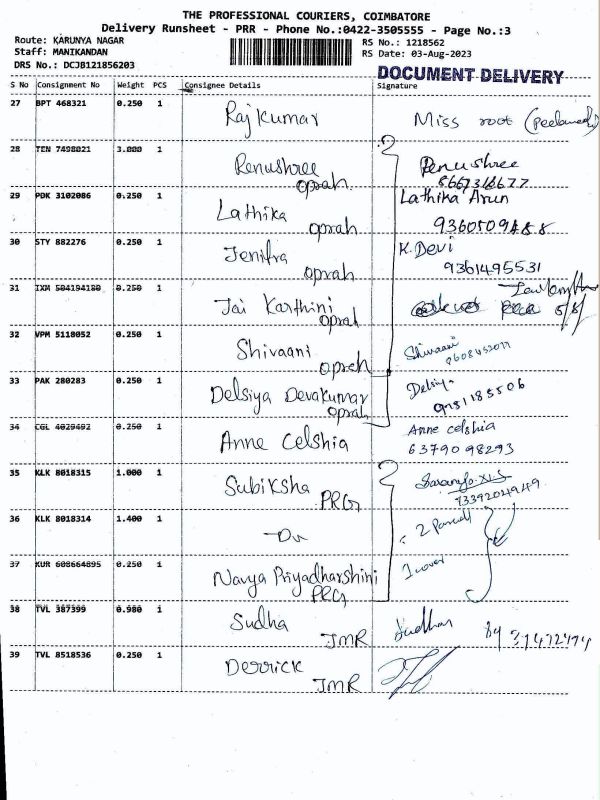 THE PROFESSIONAL COURIERS, COIMBATORE
Delivery Runsheet - PRR - Phone No.:0422-3505555 - Page No.:3
Route: KARUNYA NAGAR RS No.: 1218562
Staff: MANIKANDAN RS Date: 03-Aug-2023
DRS No.: DCJB121856203 DOCUMENT DELIVERY
S No Consignment No Weight PCS Consignee Details Signature
27 BPT 468321 0.250 1 Rajkumar Miss root
28 TEN 7498021 3.000 1 Renushree Renushree
oprah
29 PDK 3102086 0.250 1 Lathika Lathika Arun
oprah 9360509488
30 STY 882276 0.250 1 Jenifra K. Devi
oprah 9361495531
31 IXM 504194180 0.250 1 Jai Karthini
oprah 5/8
32 VPM 5118052 0.250 1 Shivaani Shivaani
oprah
33 PAK 280283 0.250 1 Delsiya Devakumar Delsiya
oprah
34 CGL 4029492 0.250 1 Anne Celshia Anne celshia
6379098293
35 KLK 8018315 1.000 1 Subiksha
PRG
36 KLK 8018314 1.400 1 - Do 2 Parcel
37 KUR 608664895 0.250 1 Navya Priyadharshini 1 cover
PRG
38 TVL 387399 0.980 1 Sudha Sudhar
JMR
39 TVL 8518536 0.250 1 Derrick
JMR